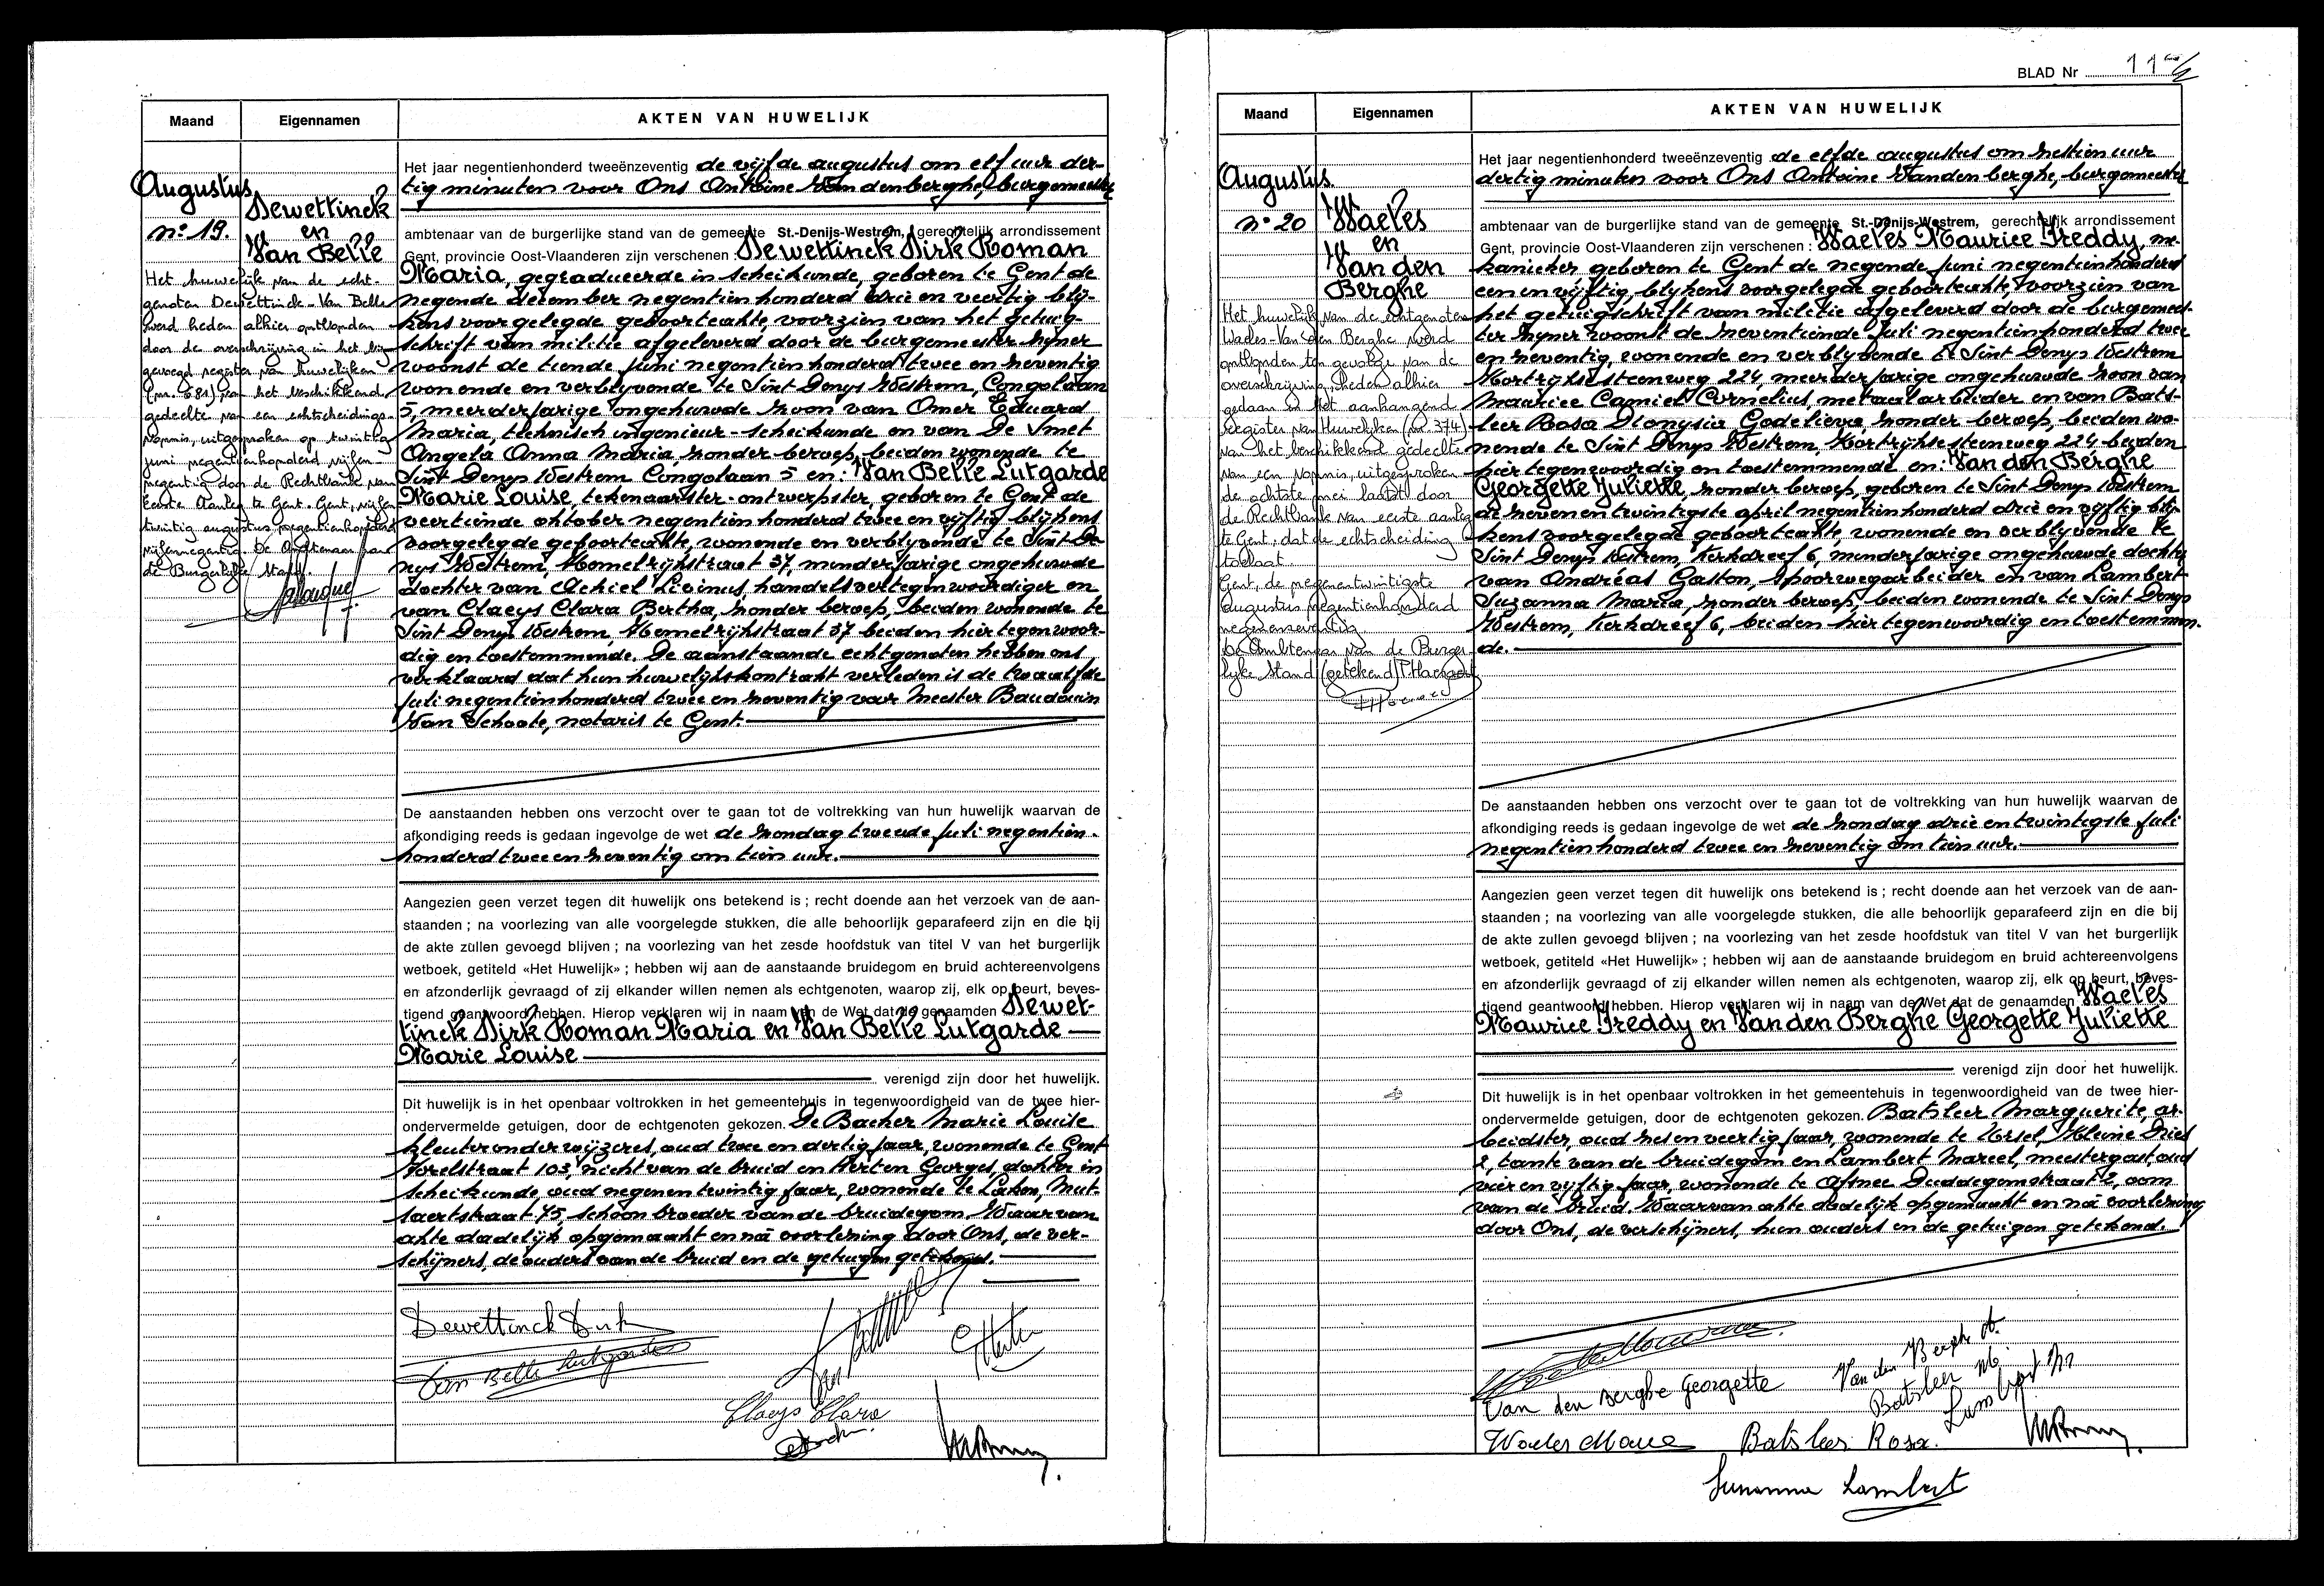 BLAD Nr 11
Maand
Eigennamen
AKTEN VAN HUWELIJK
Augustus
n° 19.
Dewettinck
en
Van Belle
Het huwelijk van de echt-
genoten Dewettinck-Van Belle
werd heden alhier ontbonden
door de overschrijving in het bij-
gevoegd register van huwelijken
(nr. 681) van het beschikkend
gedeelte van een echtscheidings-
vonnis, uitgesproken op twintig
juni negentienhonderd vijfen-
negentig door de Rechtbank van
Eerste Aanleg te Gent. Gent, vijfen-
twintig augustus negentienhonderd
vijfennegentig. De Ambtenaar van
de Burgerlijke Stand.
Het jaar negentienhonderd tweeënzeventig de vijfde augustus om elf uur der-
tig minuten voor Ons Antoine Vandenberghe, burgemeester
ambtenaar van de burgerlijke stand van de gemeente St.-Denijs-Westrem, gerechtelijk arrondissement
Gent, provincie Oost-Vlaanderen zijn verschenen Dewettinck Dirk Roman
Maria, gegradueerde in scheikunde, geboren te Gent de
negende december negentienhonderd drie en veertig blij-
kens voorgelegde geboorteakte, voorzien van het getuig-
schrift van militie afgeleverd door de burgemeester zijner
woonst de tiende juni negentienhonderd twee en zeventig
wonende en verblijvende te Sint Denys Westrem, Congolaan
5, meerderjarige ongehuwde zoon van Omer Eduard
Maria, technisch ingenieur-scheikunde en van De Smet
Angela Anna Maria, zonder beroep, beiden wonende te
Sint Denys Westrem Congolaan 5 en: Van Belle Lutgarde
Marie Louise, tekenaarster-ontwerpster, geboren te Gent de
veertiende oktober negentienhonderd twee en vijftig blijkens
voorgelegde geboorteakte, wonende en verblijvende te Sint De-
nys Westrem, Hemelrijkstraat 37, minderjarige ongehuwde
dochter van Achiel Livinus, handelsvertegenwoordiger en
van Claeys Clara Bertha, zonder beroep, beiden wonende te
Sint Denys Westrem, Hemelrijkstraat 37 beiden hier tegenwoor-
dig en toestemmende. De aanstaande echtgenoten hebben ons
verklaard dat hun huwelijkskontrakt verleden is de twaalfde
juli negentienhonderd twee en zeventig voor Meester Baudouin
Van Schoote, notaris te Gent.
De aanstaanden hebben ons verzocht over te gaan tot de voltrekking van hun huwelijk waarvan de
afkondiging reeds is gedaan ingevolge de wet de zondag tweede juli negentien-
honderd twee en zeventig om tien uur.
Aangezien geen verzet tegen dit huwelijk ons betekend is ; recht doende aan het verzoek van de aan-
staanden ; na voorlezing van alle voorgelegde stukken, die alle behoorlijk geparafeerd zijn en die bij
de akte zullen gevoegd blijven ; na voorlezing van het zesde hoofdstuk van titel V van het burgerlijk
wetboek, getiteld «Het Huwelijk» ; hebben wij aan de aanstaande bruidegom en bruid achtereenvolgens
en afzonderlijk gevraagd of zij elkander willen nemen als echtgenoten, waarop zij, elk op beurt, beves-
tigend geantwoord hebben. Hierop verklaren wij in naam van de Wet dat de genaamden Dewet-
tinck Dirk Roman Maria en Van Belle Lutgarde
Marie Louise
verenigd zijn door het huwelijk.
Dit huwelijk is in het openbaar voltrokken in het gemeentehuis in tegenwoordigheid van de twee hier-
ondervermelde getuigen, door de echtgenoten gekozen. De Backer Marie Louise
kleuteronderwijzeres, oud twee en dertig jaar, wonende te Gent
straat 103, nicht van de bruid en Herten Georges, dokter in
scheikunde, oud negenentwintig jaar, wonende te Laken, Mut-
saertstraat 75, schoonbroeder van de bruidegom. Waarvan
akte dadelijk opgemaakt en na voorlezing door Ons, de ver-
schijners, de ouders van de bruid en de getuigen getekend.
Dewettinck Dirk
Van Belle Lutgarde
Van Belle
G Herten
Claeys Clara
Maand
Eigennamen
AKTEN VAN HUWELIJK
Augustus.
n° 20
Waeles
en
Van den
Berghe
Het huwelijk van de echtgenoten
Waeles-Van den Berghe werd
ontbonden ten gevolge van de
overschrijving, heden alhier
gedaan in het aanhangend
register van Huwelijken (nr 374)
van het beschikkend gedeelte
van een vonnis, uitgesproken
de achtste mei laatst door
de Rechtbank van eerste aanleg
te Gent, dat de echtscheiding
toelaat.
Gent, de negenentwintigste
augustus negentienhonderd
negenenzeventig
De Ambtenaar van de Burger-
lijke Stand (getekend)
Het jaar negentienhonderd tweeënzeventig de elfde augustus om zestien uur
dertig minuten voor Ons Antoine Vandenberghe, burgemeester
ambtenaar van de burgerlijke stand van de gemeente St.-Denijs-Westrem, gerechtelijk arrondissement
Gent, provincie Oost-Vlaanderen zijn verschenen : Waeles Maurice Freddy, me-
kanieker geboren te Gent de negende juni negentienhonderd
een en vijftig blijkens voorgelegde geboorteakte voorzien van
het getuigschrift van militie afgeleverd door de burgemees-
ter zijner woonst de zeventiende juli negentienhonderd twee
en zeventig, wonende en verblijvende te Sint Denys Westrem
Kortrijksesteenweg 224, meerderjarige ongehuwde zoon van
Maurice Camiel Cornelius, metaalarbeider en van Bats-
leer Rosa Dionysia Godelieve zonder beroep, beiden wo-
nende te Sint Denys Westrem, Kortrijksesteenweg 224 beiden
hier tegenwoordig en toestemmende en: Van den Berghe
Georgette Juliette, zonder beroep, geboren te Sint Denys Westrem
de zevenentwintigste april negentienhonderd drie en vijftig blij-
kens voorgelegde geboorteakte, wonende en verblijvende te
Sint Denys Westrem, Kerkdreef 6, minderjarige ongehuwde dochter
van Andréas Gaston, spoorwegarbeider en van Lambert
Suzanna Maria, zonder beroep, beiden wonende te Sint Denys
Westrem, Kerkdreef 6, beiden hier tegenwoordig en toestemmen-
de.
De aanstaanden hebben ons verzocht over te gaan tot de voltrekking van hun huwelijk waarvan de
afkondiging reeds is gedaan ingevolge de wet de zondag drie en twintigste juli
negentienhonderd twee en zeventig om tien uur.
Aangezien geen verzet tegen dit huwelijk ons betekend is ; recht doende aan het verzoek van de aan-
staanden ; na voorlezing van alle voorgelegde stukken, die alle behoorlijk geparafeerd zijn en die bij
de akte zullen gevoegd blijven ; na voorlezing van het zesde hoofdstuk van titel V van het burgerlijk
wetboek, getiteld «Het Huwelijk» ; hebben wij aan de aanstaande bruidegom en bruid achtereenvolgens
en afzonderlijk gevraagd of zij elkander willen nemen als echtgenoten, waarop zij, elk op beurt, beves-
tigend geantwoord hebben. Hierop verklaren wij in naam van de Wet dat de genaamden Waeles
Maurice Freddy en Van den Berghe Georgette Juliette
verenigd zijn door het huwelijk.
Dit huwelijk is in het openbaar voltrokken in het gemeentehuis in tegenwoordigheid van de twee hier-
ondervermelde getuigen, door de echtgenoten gekozen. Batsleer Marguerite, ar-
beidster, oud zesenveertig jaar, wonende te Ursel, Kleine
2, tante van de bruidegom en Lambert Marcel, meestergast, oud
vier en vijftig jaar, wonende te Afsnee Duddegemstraat 2, oom
van de bruid. Waarvan akte dadelijk opgemaakt en na voorlezing
door Ons, de verschijners, hun ouders en de getuigen getekend.
Van den Berghe A.
Van den Berghe Georgette
Batsleer M.
Lambert M
Waeles Maurice
Batsleer Rosa.
Suzanna Lambert